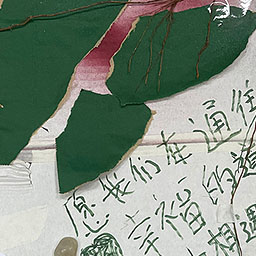 愿我们在通往
幸福的道
相遇